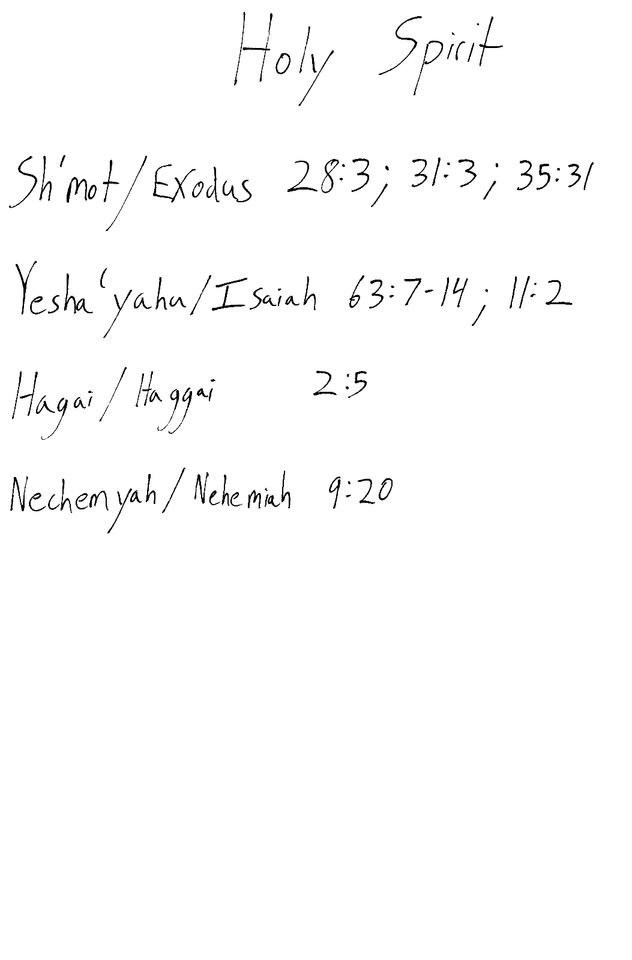 Holy Spirit
Sh'mot/Exodus 28:3; 31:3; 35:31
Yesha‘yahu/Isaiah 63:7-14; 11:2
Hagai/Haggai 2:5
Nechemyah/Nehemiah 9:20